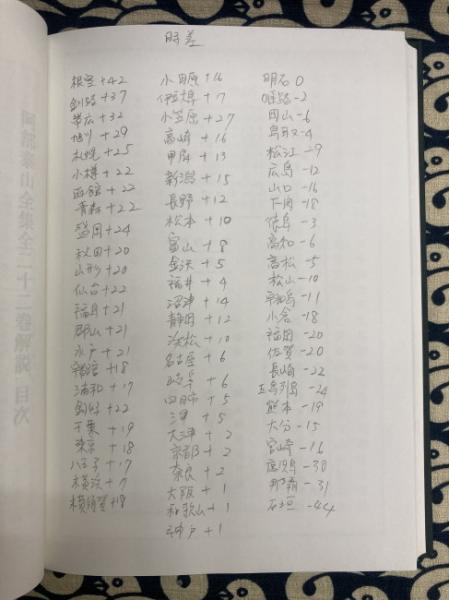 時差
根室 +42
釧路 +37
帯広 +32
旭川 +29
札幌 +25
小樽 +22
函館 +22
青森 +22
盛岡 +24
秋田 +20
山形 +20
仙台 +22
福島 +21
郡山 +21
水戸 +21
宇都宮 +18
浦和 +17
銚子 +22
千葉 +19
東京 +18
八王子 +17
横浜 +17
横須賀 +18
小田原 +16
伊豆大島 +17
小笠原 +27
高崎 +16
甲府 +13
新潟 +15
長野 +12
松本 +10
富山 +8
金沢 +5
福井 +4
沼津 +14
静岡 +12
浜松 +10
名古屋 +6
岐阜 +6
四日市 +5
津 +5
大津 +2
京都 +2
奈良 +2
大阪 +1
和歌山 +1
神戸 +1
明石 0
姫路 -2
岡山 -6
鳥取 -4
松江 -9
広島 -12
山口 -16
下関 -18
徳島 -3
高知 -6
高松 -5
松山 -10
小倉 -18
福岡 -20
佐賀 -20
長崎 -22
五島列島 -24
熊本 -19
大分 -15
宮崎 -16
鹿児島 -30
那覇 -31
石垣 -44
阿部泰山全集全二十二巻解説 目次